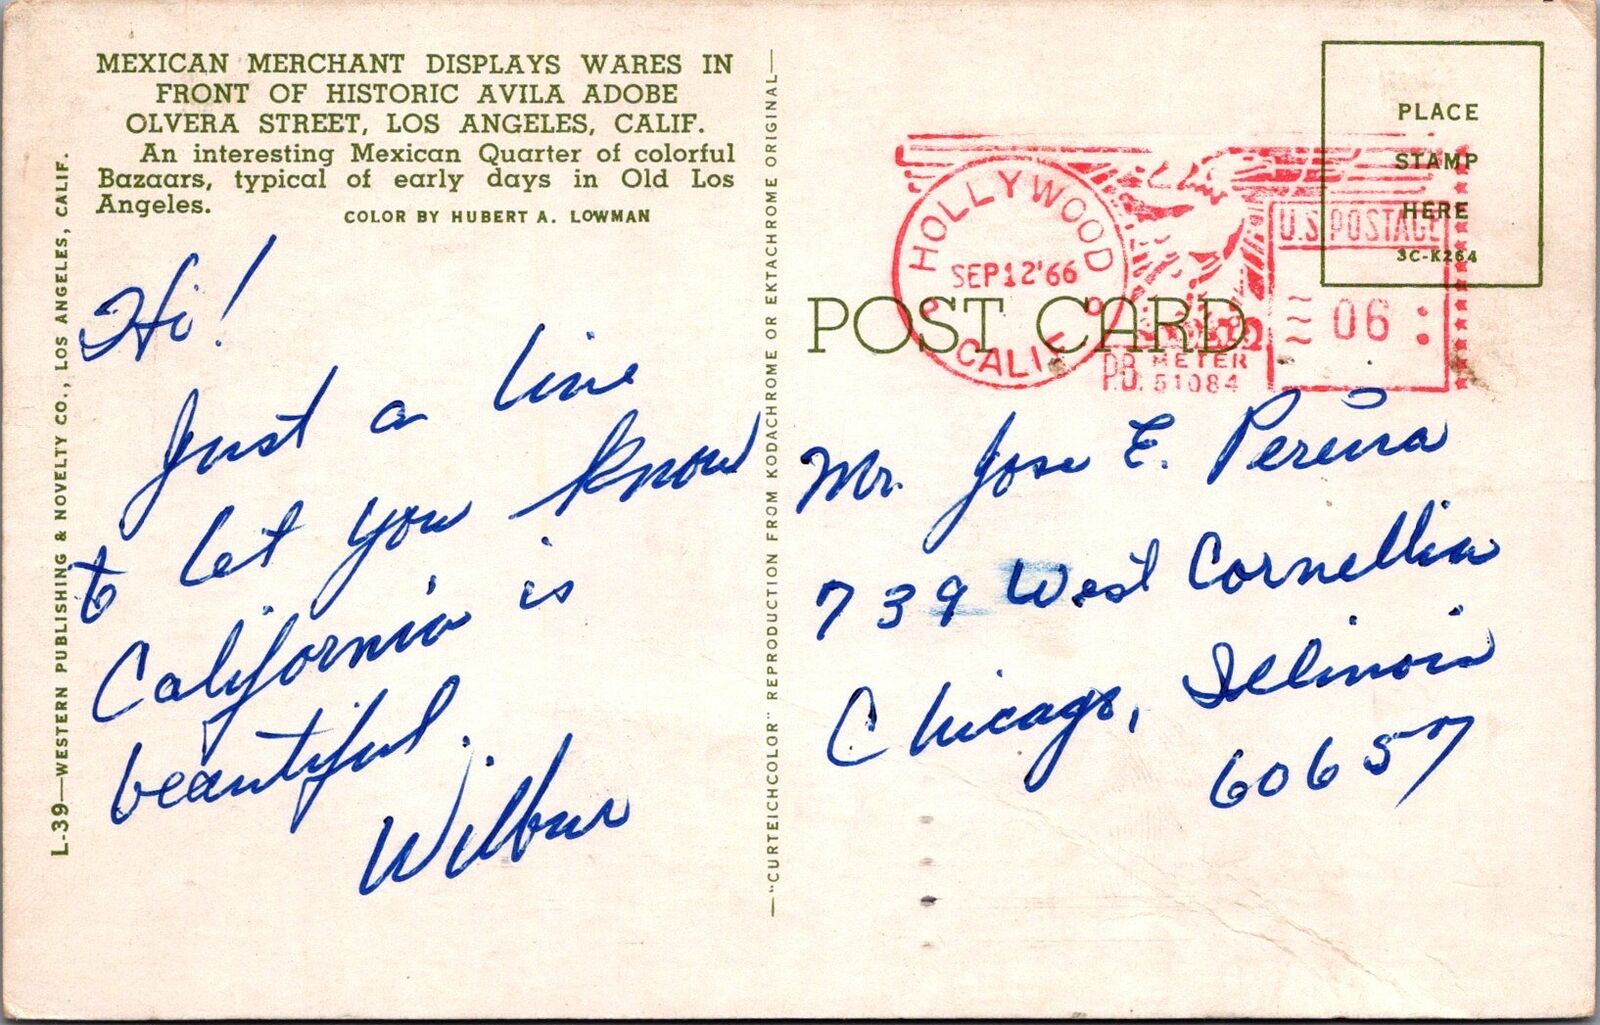 MEXICAN MERCHANT DISPLAYS WARES IN
FRONT OF HISTORIC AVILA ADOBE
OLVERA STREET, LOS ANGELES, CALIF.
An interesting Mexican Quarter of colorful
Bazaars, typical of early days in Old Los
Angeles.
COLOR BY HUBERT A. LOWMAN
L-39—WESTERN PUBLISHING & NOVELTY CO., LOS ANGELES, CALIF.
Hi!
Just a line
to let you know
California is
beautiful.
Wilbur
—"CURTEICHCOLOR" REPRODUCTION FROM KODACHROME OR EKTACHROME ORIGINAL—
PLACE
STAMP
HERE
3C-K264
HOLLYWOOD
SEP12'66
CALIF
U.S. POSTAGE
06
P.B. METER
51084
POST CARD
Mr. Jose E.
739 West Cornellia
Chicago, Illinois
60657